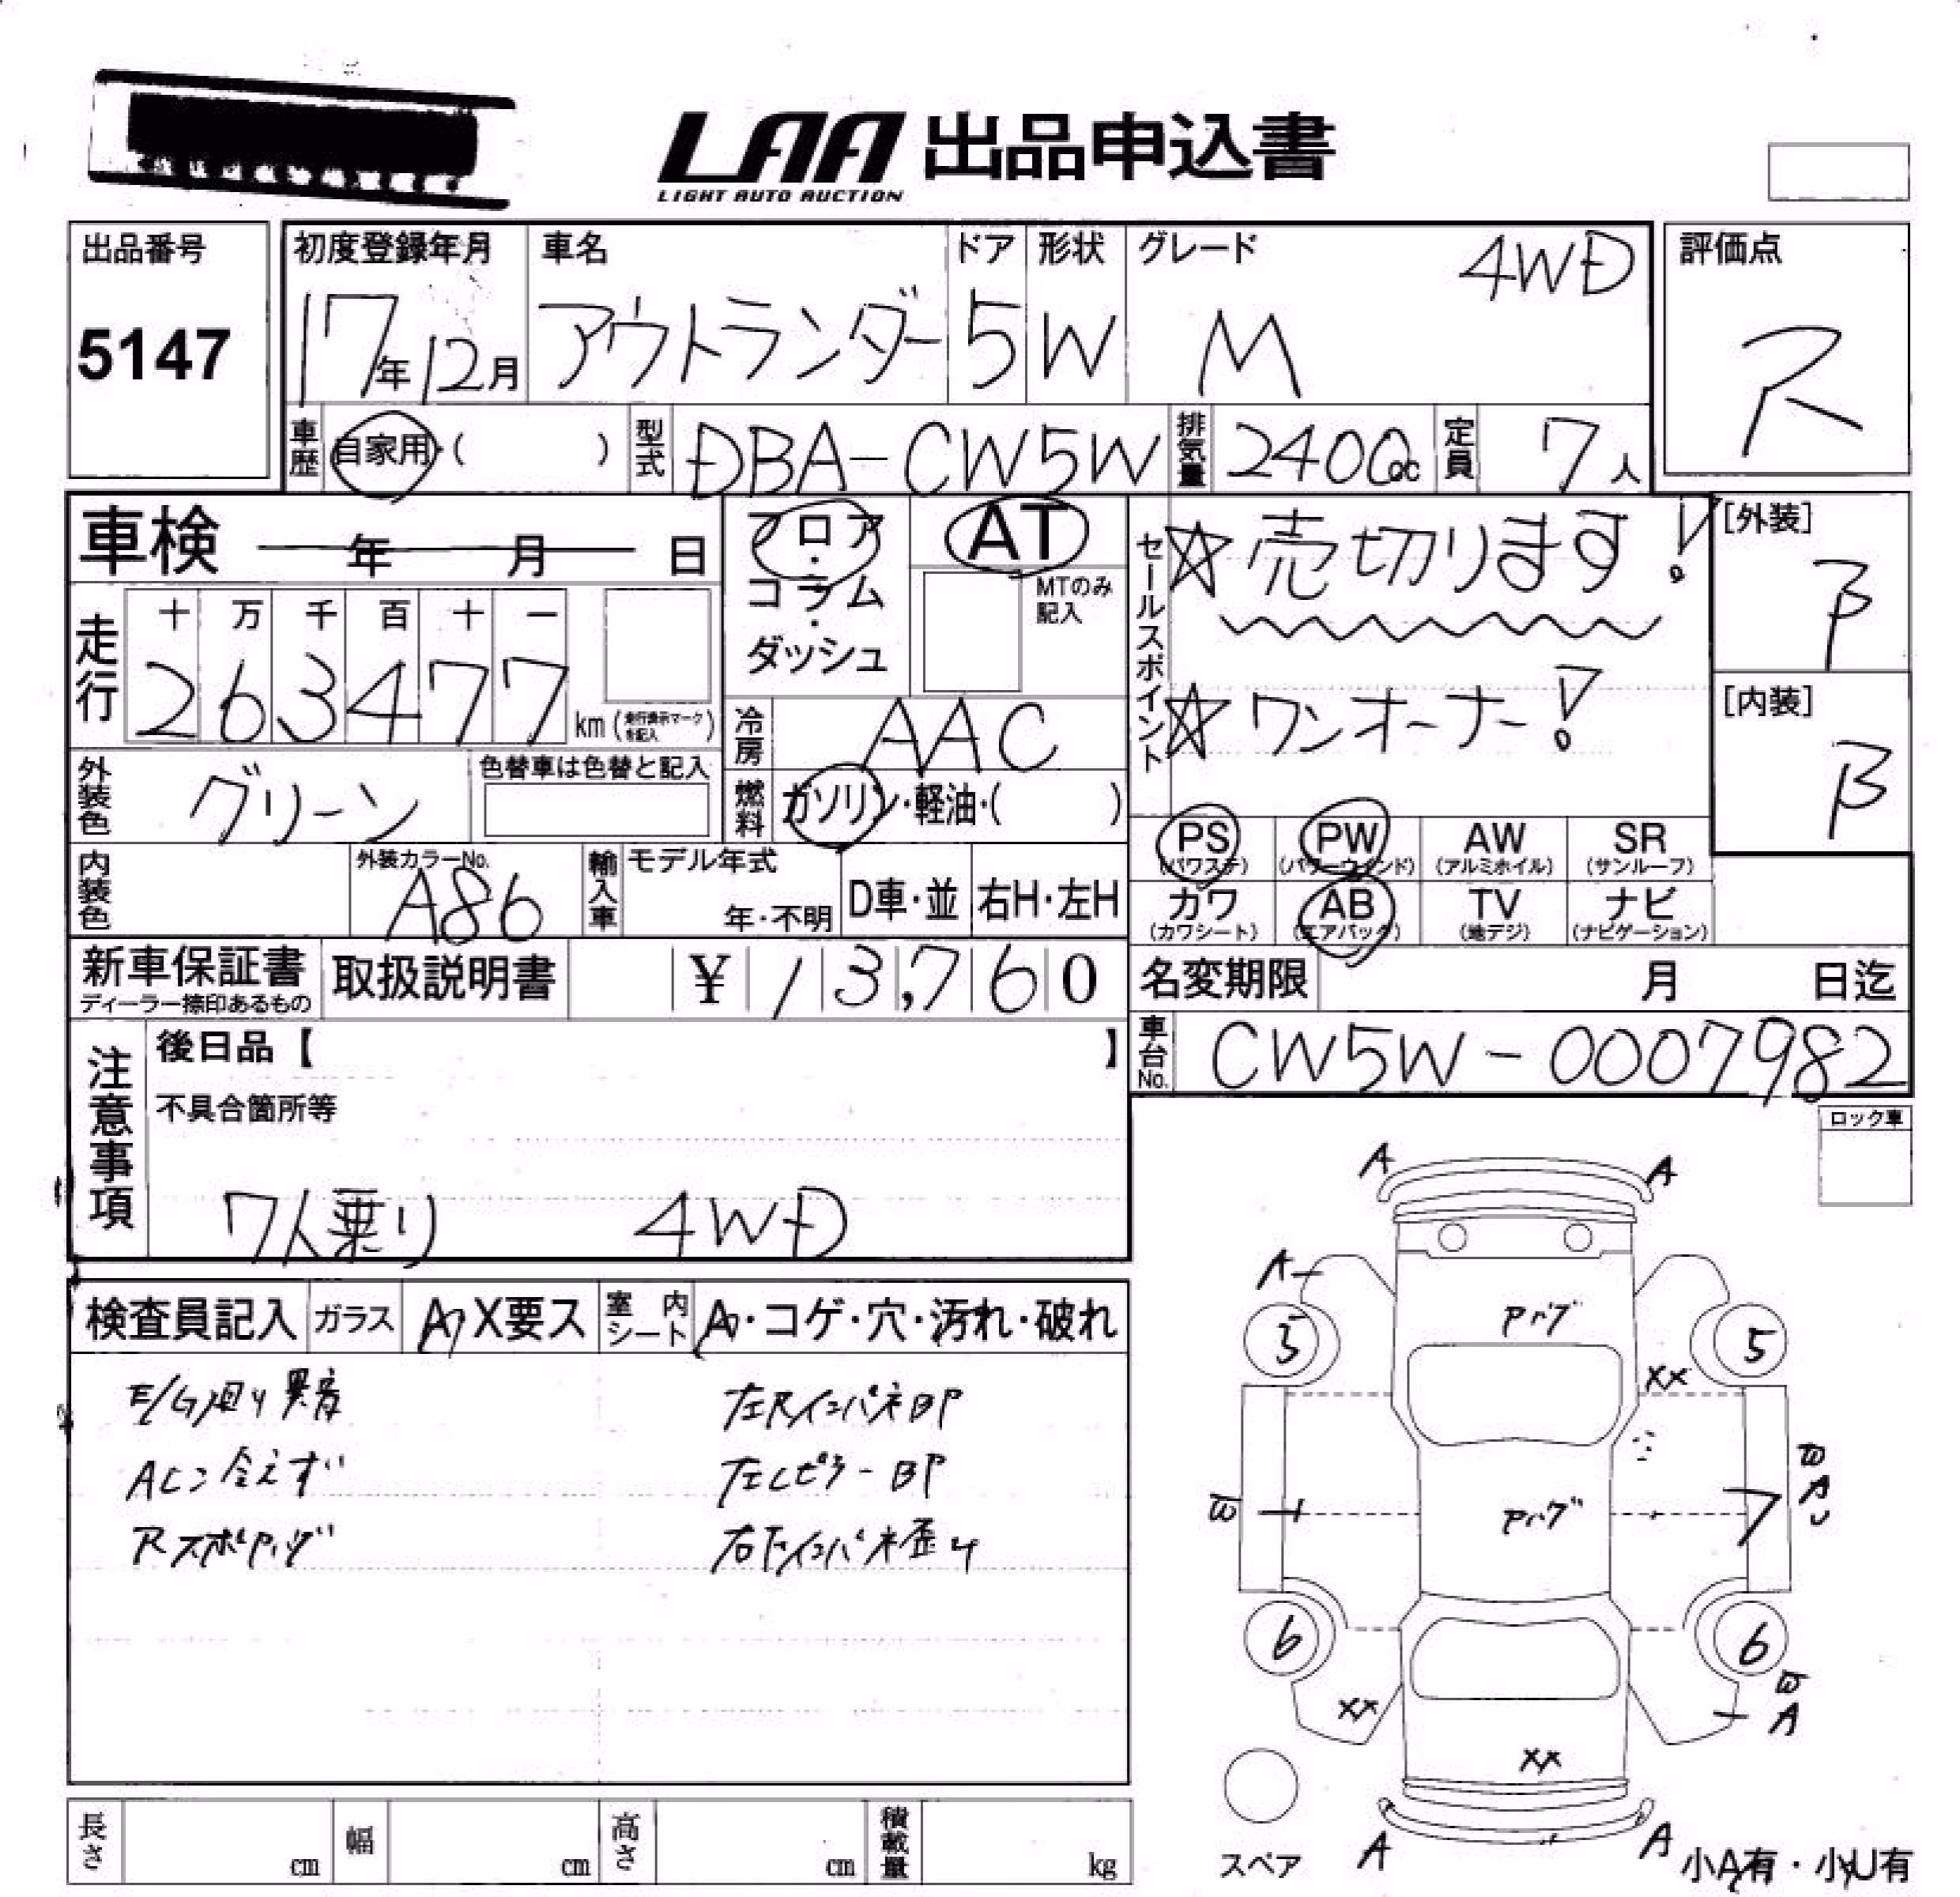 LAA 出品申込書
LIGHT AUTO AUCTION
出品番号 初度登録年月 車名 ドア 形状 グレード 4WD 評価点
5147 17年12月 アウトランダー 5 W M ア
車歴 自家用・( ) 型式 DBA-CW5W 排気量 2400cc 定員 7人
車検 年 月 日 フロア・コラム・ダッシュ AT
MTのみ記入
セールスポイント ☆売切ります!
☆ワンオーナー!
[外装] β
[内装] β
走行 十 万 千 百 十 一
2 6 3 4 7 7 km (走行表示マークを記入)
冷房 AAC
外装色 グリーン 色替車は色替と記入
燃料 ガソリン・軽油・( )
PS (パワステ) PW (パワーウィンド) AW (アルミホイル) SR (サンルーフ)
カワ (カワシート) AB (エアバック) TV (地デジ) ナビ (ナビゲーション)
内装色 外装カラーNo. A86 輸入車 モデル年式 年・不明 D車・並 右H・左H
新車保証書 ディーラー捺印あるもの 取扱説明書 ¥ 13,760
名変期限 月 日迄
車台No. CW5W-0007982
注意事項 後日品【 】
不具合箇所等
7人乗り 4WD
ロック車
検査員記入 ガラス A・X要ス 室内シート A・コゲ・穴・汚れ・破れ
E/G廻り異音 左Rインパネ BP
ACコン冷えず 左Cピラー BP
Rスポ Pハゲ 右Fインパネ歪み
A A
A
5 Pハゲ 5
XX
B A U
Pハゲ 7
6 6
XX B A
XX
A A
スペア 小A有・小U有
長さ cm 幅 cm 高さ cm 積載量 kg